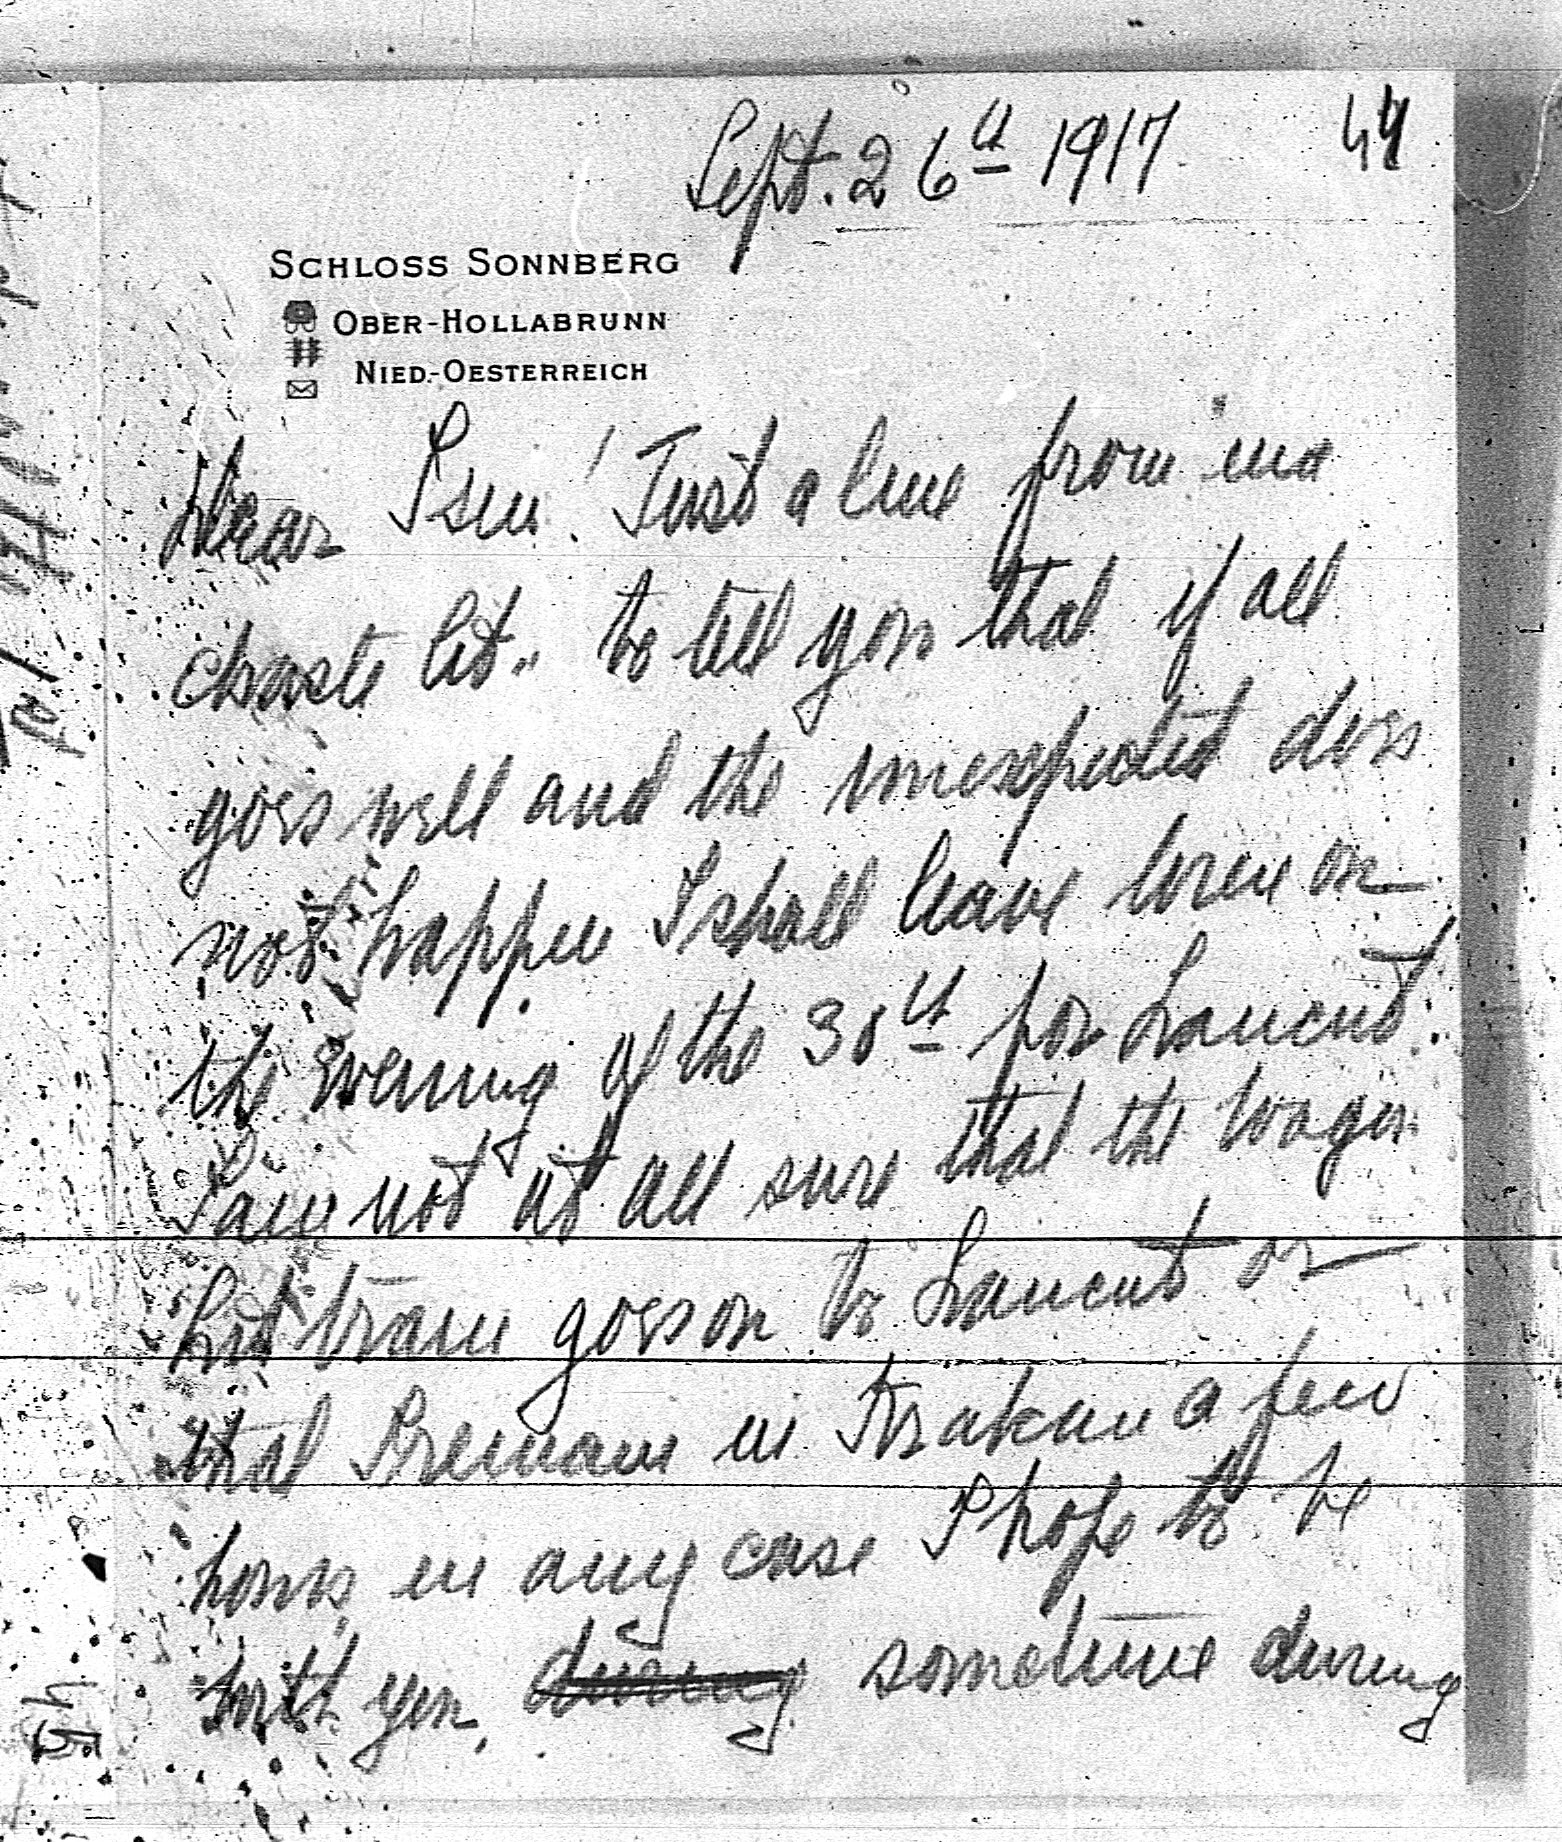 Sept. 26th 1917
44
SCHLOSS SONNBERG
OBER-HOLLABRUNN
NIED.-OESTERREICH
Dear ! Just a line from ma
chaste lit.. to tell you that if all
goes well and the unexpected does
not happen I shall leave here on
the evening of the 30th for Lancut.
I am not at all sure that the wagon
lit train goes on to Lancut or
that I remain in Krakau a few
hours in any case I hope to be
with you, during sometime during